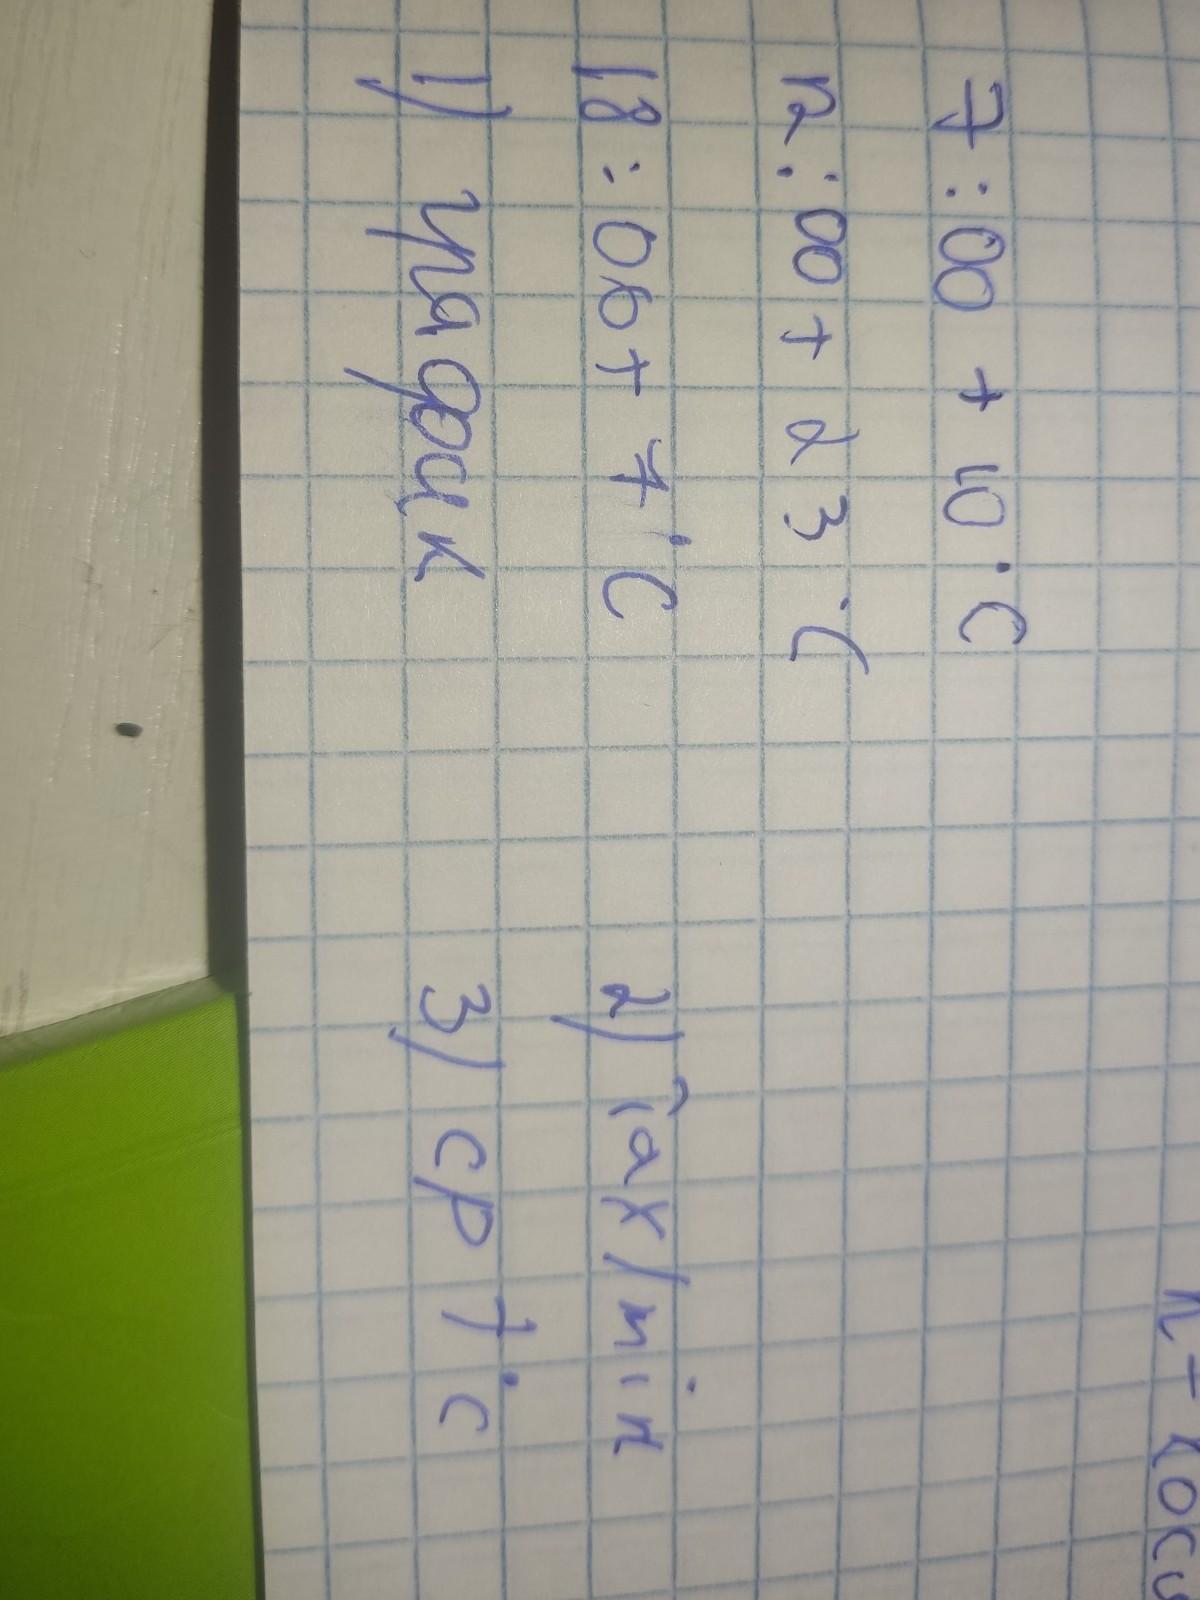 7:00 + 10°C
12:00 + 23°C
18:00 + 7°C
2) max/min
1) график
3) ср 7°C